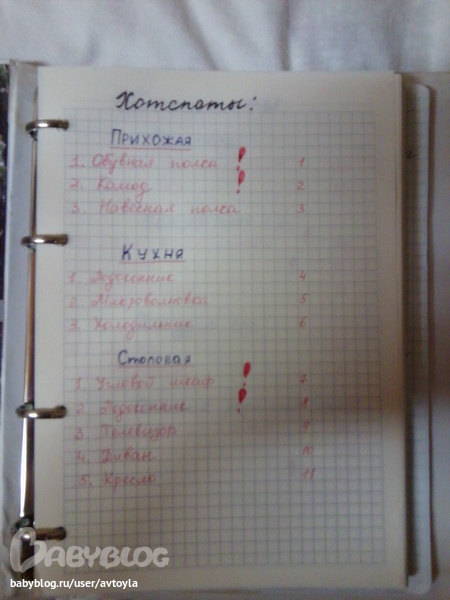 Хотспоты:
ПРИХОЖАЯ
1. Обувная полка ! 1
2. Комод ! 2
3. Навесная полка 3
КУХНЯ
1. Подоконник 4
2. Микроволновка 5
3. Холодильник 6
СТОЛОВАЯ
1. Угловой шкаф ! 7
2. Подоконник ! 8
3. Телевизор 9
4. Диван 10
5. Кресло 11
BABYBLOG
babyblog.ru/user/avtoyla